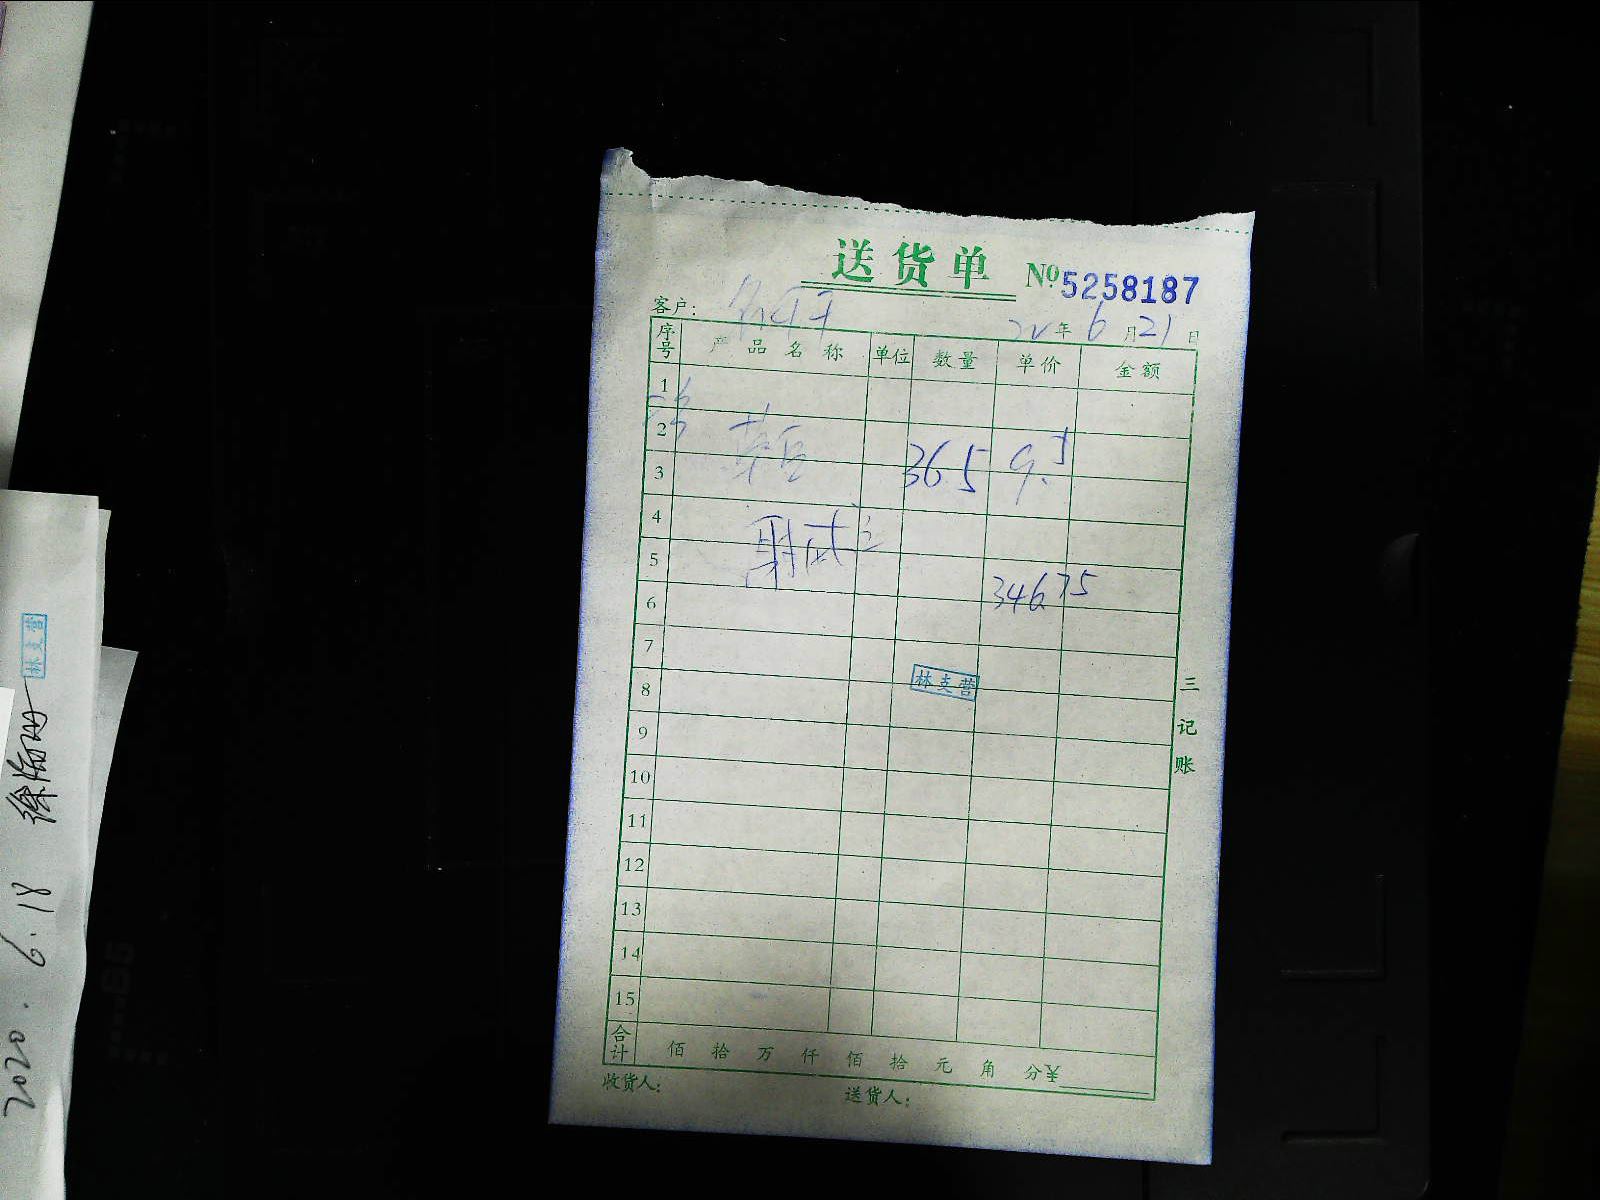 送货单 №5258187
客户:
20年6月21日
序号 产品名称 单位 数量 单价 金额
1
2
3 365 9.5
4
5
34675
6
7
8 林支营
9
10
11
12
13
14
15
合计 佰 拾 万 仟 佰 拾 元 角 分¥
收货人: 送货人:
三记账
林支营
2020.6.18